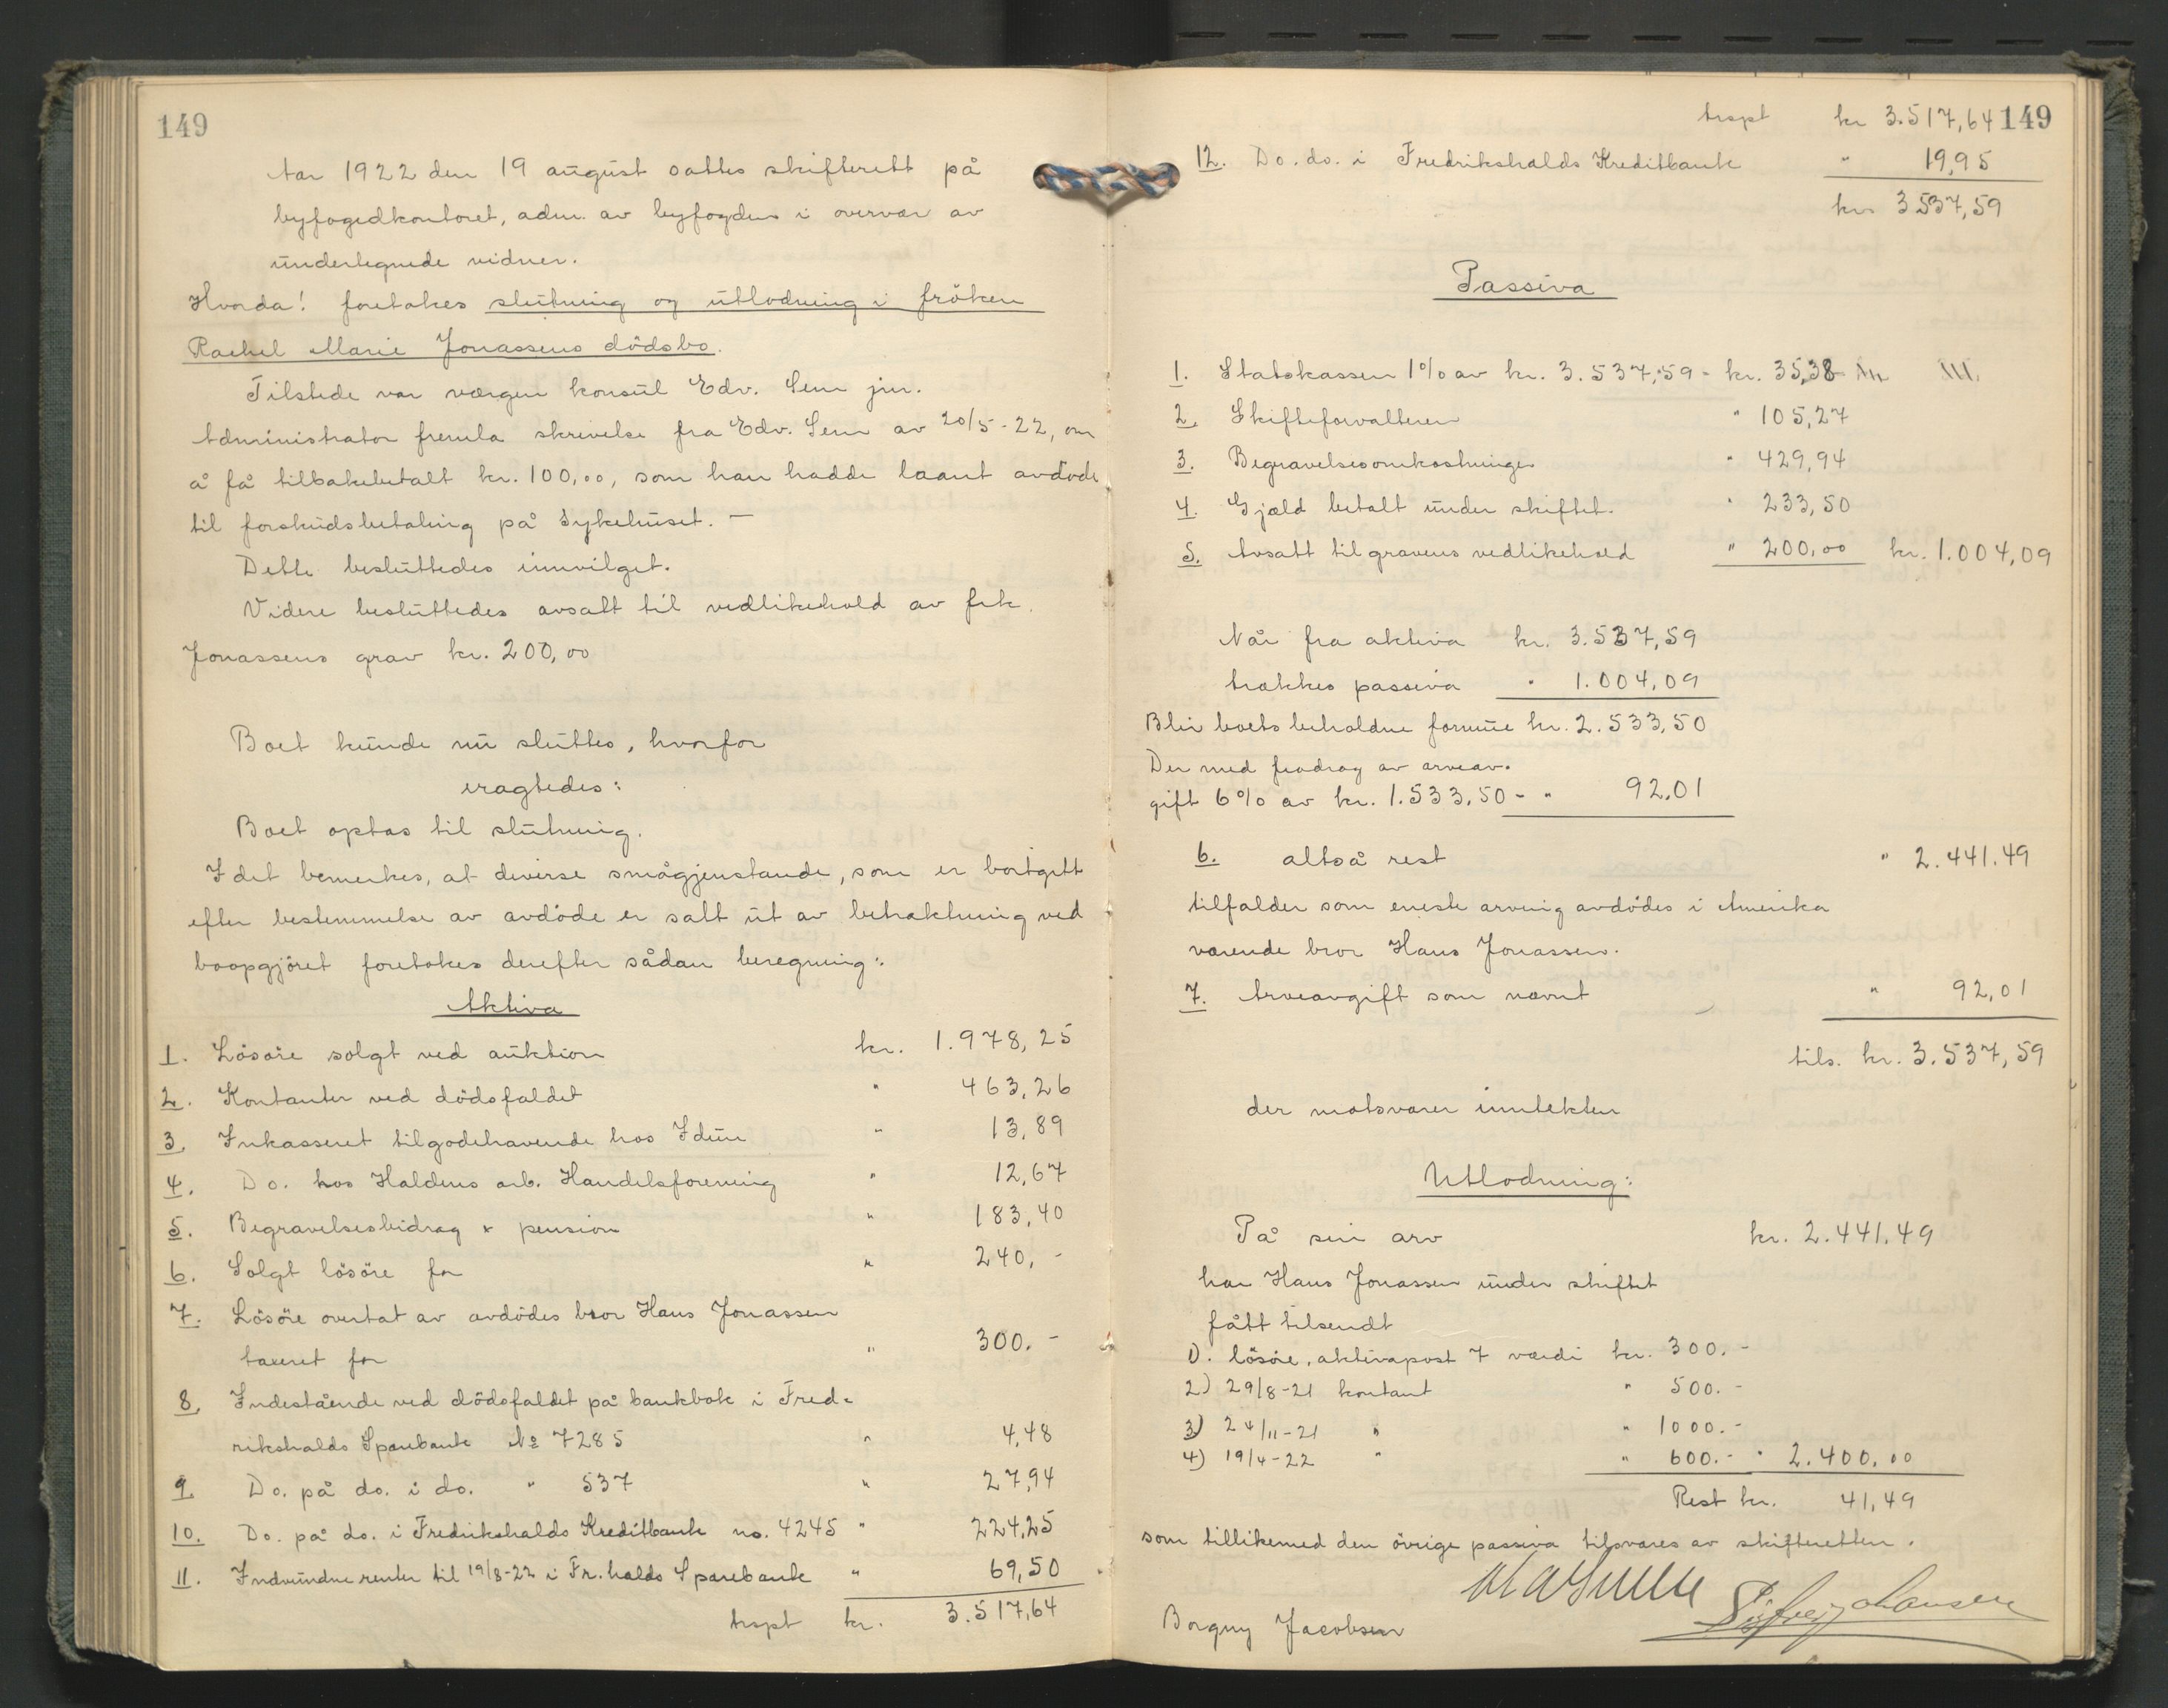 149
Aar 1922 den 19 august sattes skifterett på
byfogedkontoret, adm. av byfogden i overvær av
undertegnede vidner.
Hvorda! foretokes slutning og utlodning i fröken
Rachel Marie Jonassens dödsbo.
Tilstede var værgen konsul Edv. Sem jun.
Administrator fremla skrivelse fra Edv. Sem av 20/5-22, om
å få tilbakebetalt kr. 100,00, som han hadde laant avdöde
til forskudsbetaling på Sykehuset. —
Dette besluttedes innvilget.
Videre besluttedes avsatt til vedlikehold av frk.
Jonassens grav kr. 200,00
Boet kunde nu sluttes, hvorfor
eragtedes:
Boet optas til slutning.
Idet bemerkes, at diverse smågjenstande, som er bortgitt
efter bestemmelse av avdöde er satt ut av betraktning ved
boopgjöret foretokes derefter sådan beregning:
Aktiva
1. Lösöre solgt ved auktion kr. 1.978,25
2. Kontanter ved dödsfaldet " 463,26
3. Inkasseret tilgodehavende hos Idun " 13,89
4. Do. hos Haldens arb. Handelsforening " 12,67
5. Begravelsesbidrag & pension " 183,40
6. Solgt lösöre for " 240,-
7. Lösöre overtat av avdödes bror Hans Jonassen
taxeret for " 300.-
8. Indestående ved dödsfaldet på bankbok i Fred-
rikshalds Sparebank No 7285 " 4,48
9. Do. på do. i do. " 537 " 27,94
10. Do. på do. i Fredrikshalds Kreditbank no. 4245 " 224,25
11. Indvundne renter til 19/8-22 i Fr.halds Sparebank " 69,50
trspt kr. 3.517,64
trspt kr 3.517,64 149
12. Do. do. i Fredrikshalds Kreditbank " 19,95
kr. 3537,59
Passiva
1. Statskassen 1% av kr. 3.537,59 - kr. 35,38
2. Skifteforvalteren " 105,27
3. Begravelsesomkostninger " 429,94
4. Gjæld betalt under skiftet. " 233,50
5. Avsatt til gravens vedlikehold " 200,00 kr. 1.004,09
Når fra aktiva kr. 3.537,59
trækkes passiva " 1.004,09
Blir boets beholdne formue kr. 2.533,50
Der med fradrag av arveav-
gift 6% av kr. 1.533,50 - " 92,01
6. altså rest " 2.441.49
tilfalder som eneste arving avdödes i Amerika
værende bror Hans Jonassen.
7. Arveavgift som nævnt " 92,01
tils. kr. 3.537,59
der motsvarer inntekten
Utlodning:
På sin arv kr. 2.441.49
har Hans Jonassen under skiftet
fått tilsendt
1). lösöre, aktivapost 7 værdi kr. 300.-
2) 29/8-21 kontant " 500.-
3) 24/11-21 " " 1000.-
4) 19/4-22 " " 600.- " 2.400,00
Rest kr. 41,49
som tillikemed den övrige passiva tilsvares av skifteretten.
Borgny Jacobsen